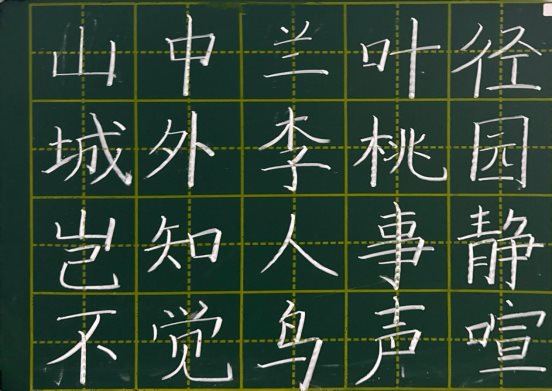 山中兰叶径
城外李桃园
岂知人事静
不觉鸟声喧